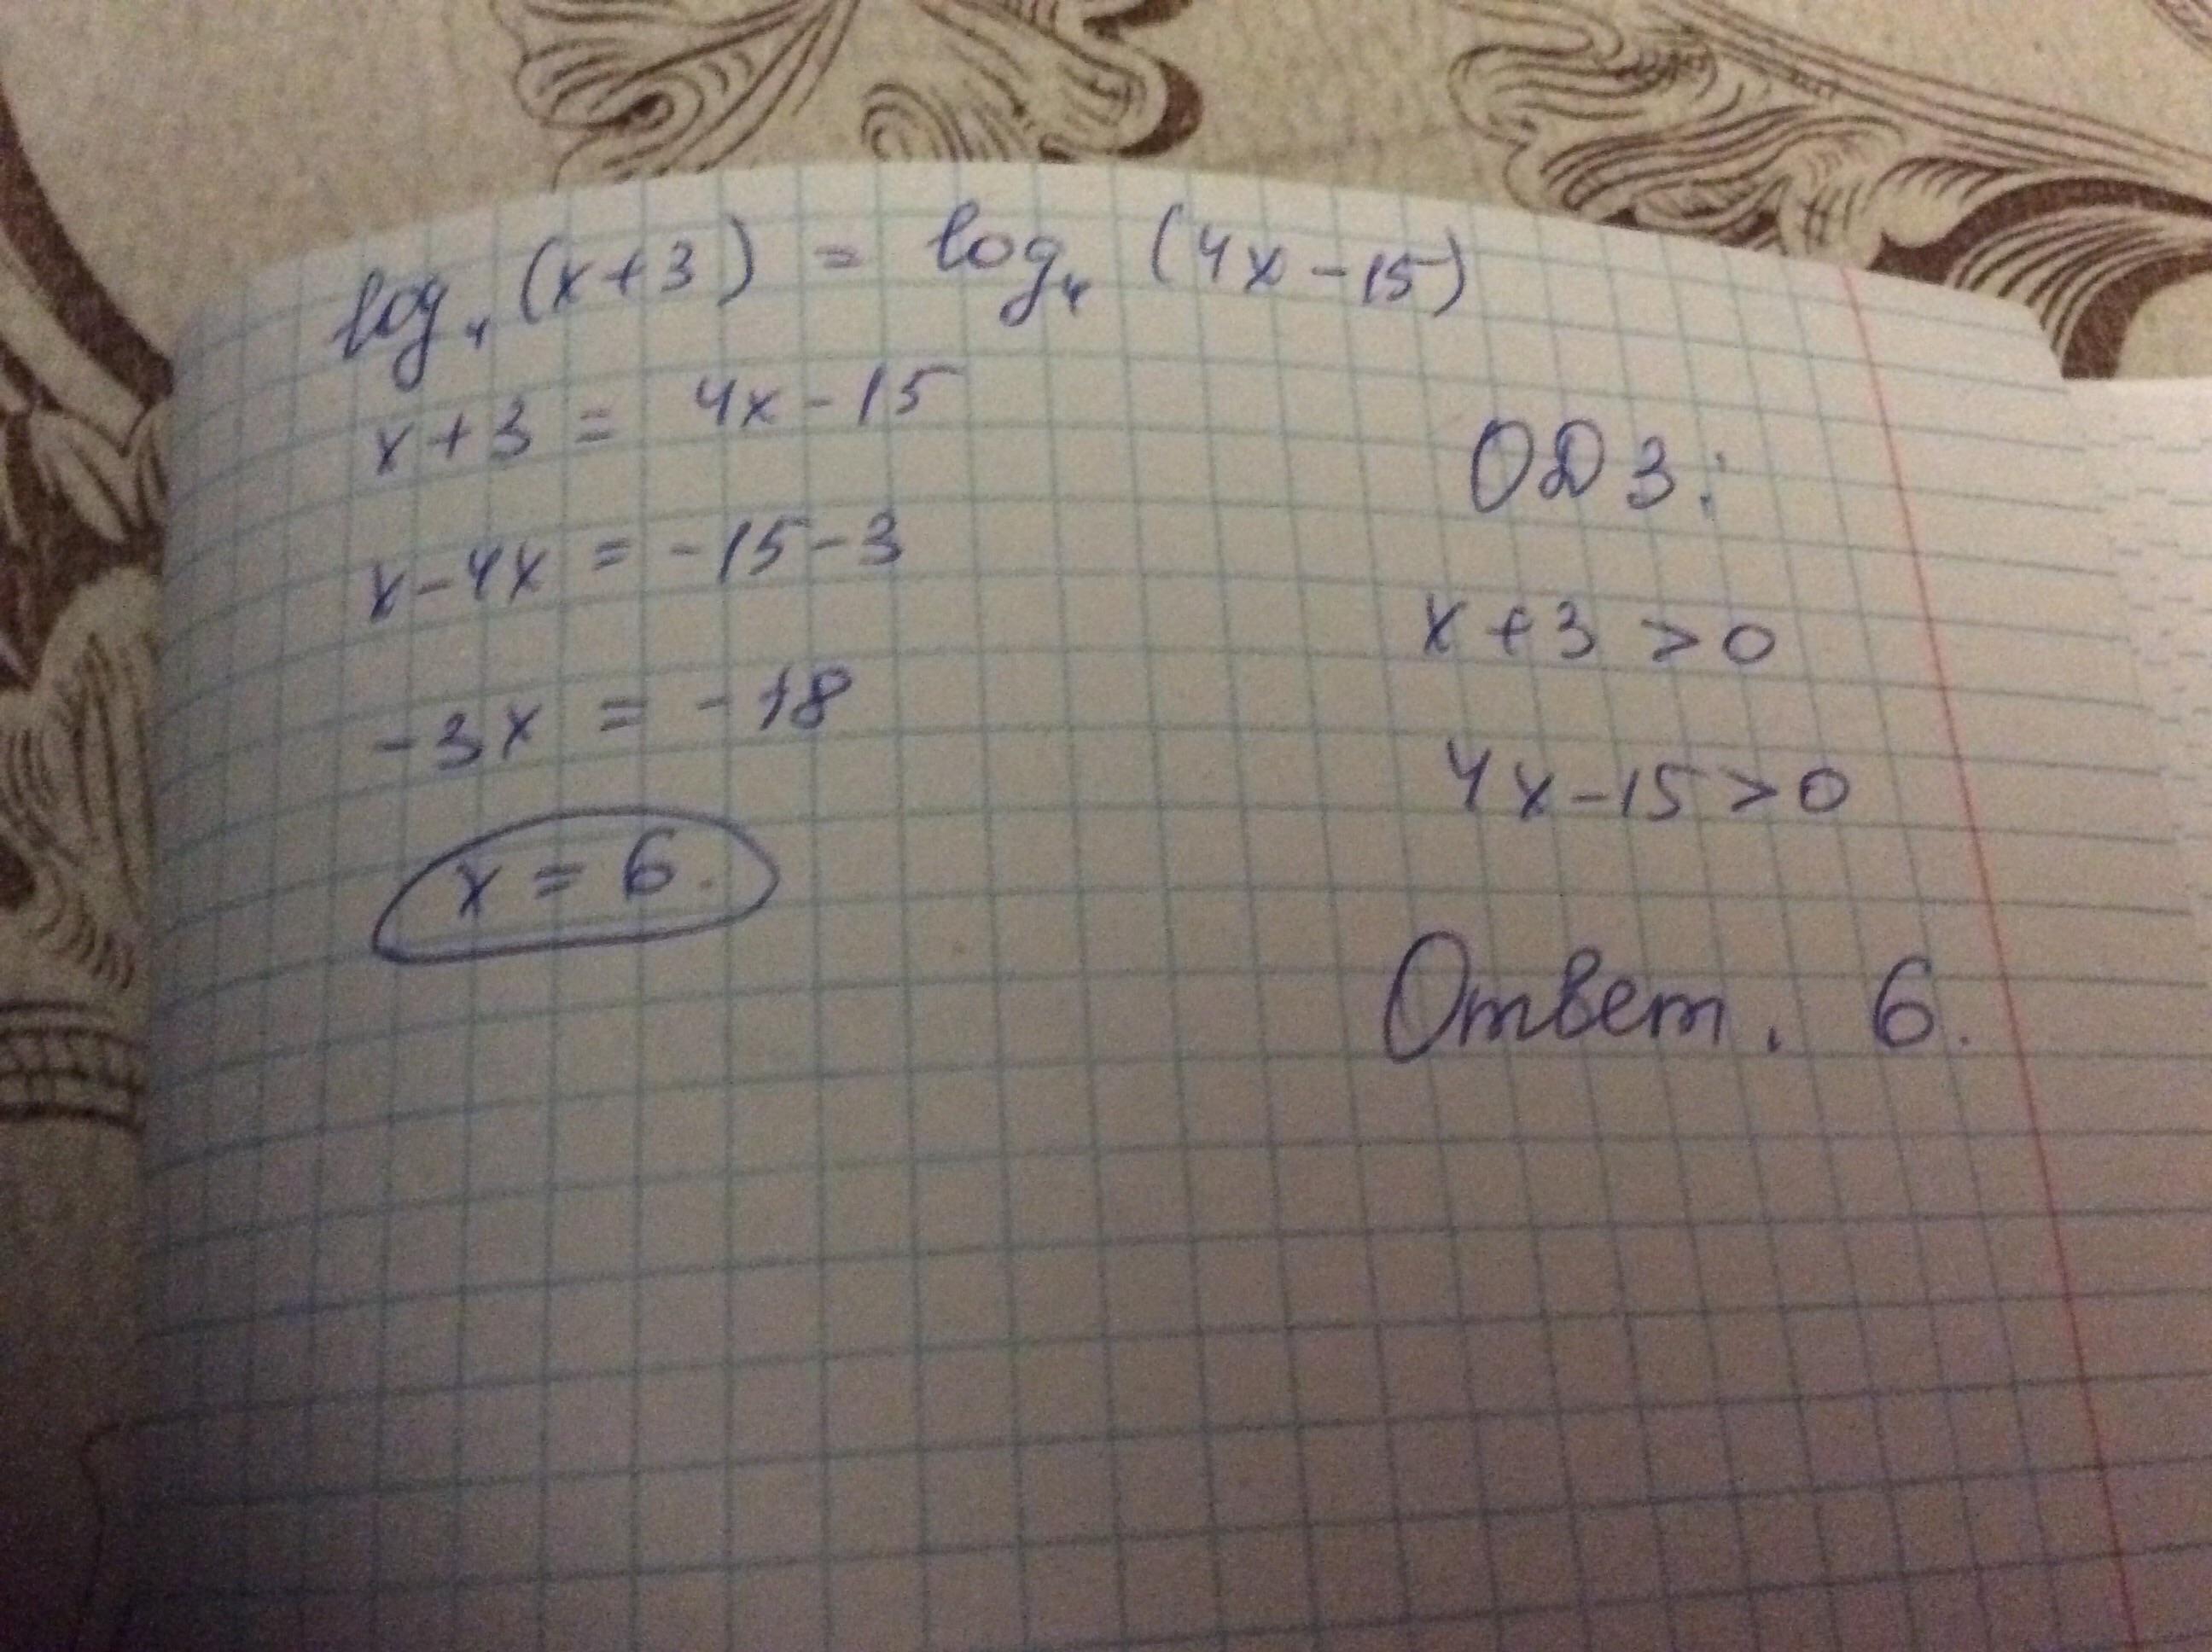 log₄ (x+3) = log₄ (4x-15)
x+3 = 4x-15
x-4x = -15-3
-3x = -18
x = 6.
ОДЗ:
x+3 >0
4x-15>0
Ответ. 6.